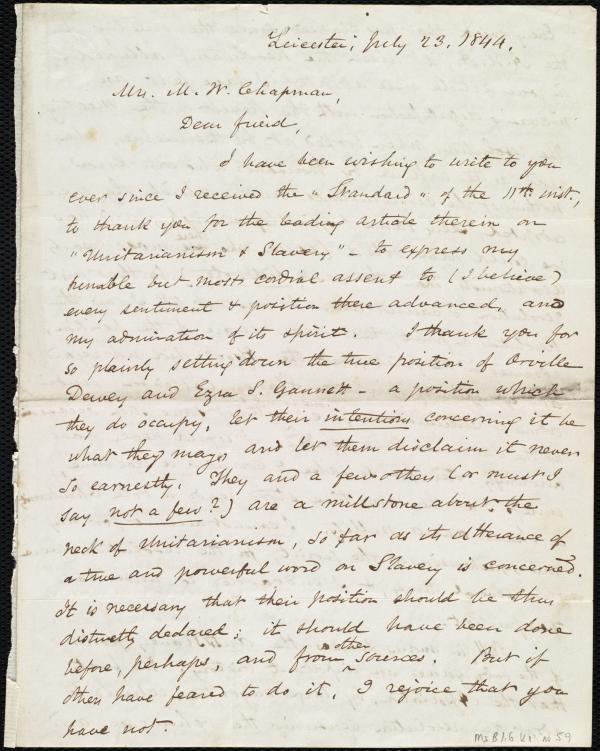 Leicester, July 23. 1844.
Mrs. M. W. Chapman,
Dear friend,
I have been wishing to write to you
ever since I received the "Standard" of the 11th inst.,
to thank you for the leading article therein on
"Unitarianism & Slavery" - to express my
humble but most cordial assent to (I believe)
every sentiment & position there advanced, and
my admiration of its spirit. I thank you for
so plainly setting down the true position of Orville
Dewey and Ezra S. Gannett - a position which
they do occupy, let their intentions concerning it be
what they may, and let them disclaim it never
so earnestly. They and a few others (or must I
say not a few?) are a millstone about the
neck of Unitarianism, so far as its utterance of
a true and powerful word on Slavery is concerned.
It is necessary that their position should be thus
distinctly declared; it should have been done
before, perhaps, and from other sources. But if
others have feared to do it, I rejoice that you
have not.